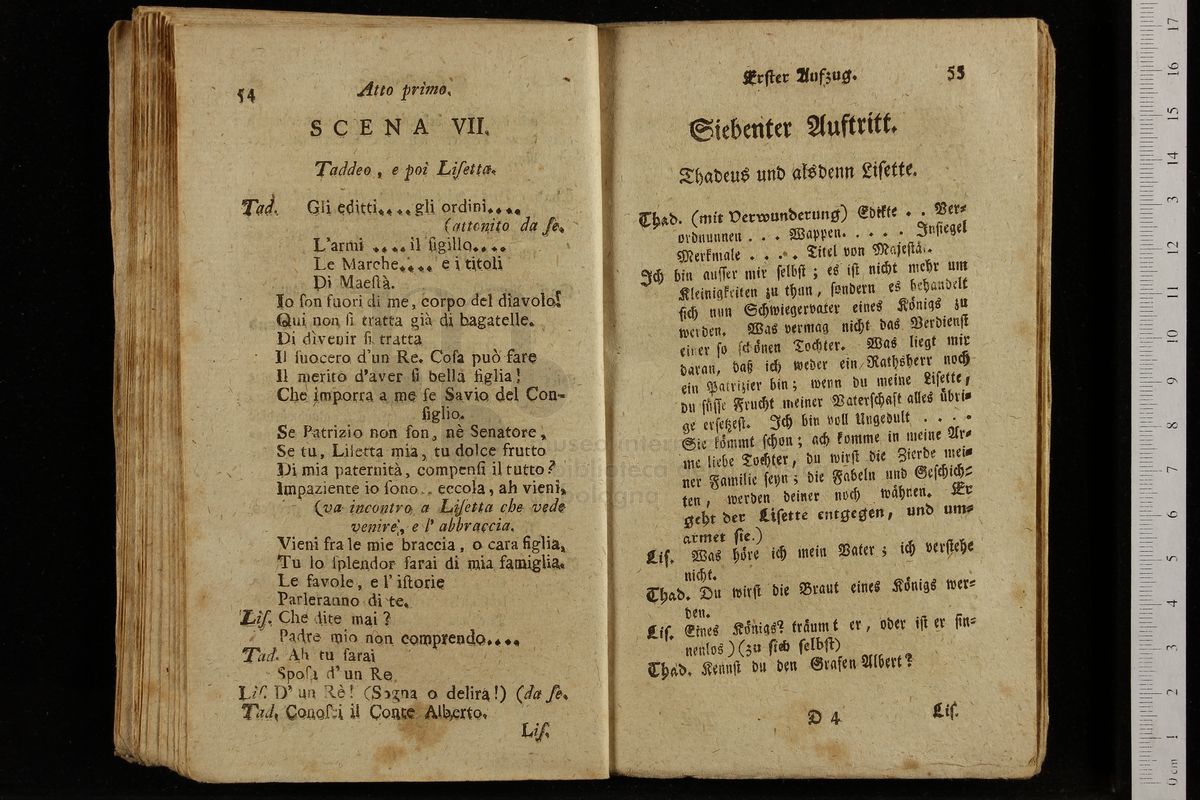 54
Atto primo.
SCENA VII.
Taddeo, e poi Liſetta.
Tad. Gli editti....gli ordini....
(attonito da ſe.
L'armi ....il ſigillo....
Le Marche.... e i titoli
Di Maeſtà.
Io ſon fuori di me, corpo del diavolo!
Qui non ſi tratta già di bagatelle.
Di divenir ſi tratta
Il ſuocero d'un Re. Coſa può fare
Il merito d'aver ſi bella figlia!
Che imporra a me ſe Savio del Con-
ſiglio.
Se Patrizio non ſon, nè Senatore,
Se tu, Liletta mia, tu dolce frutto
Di mia paternità, compenſi il tutto?
Impaziente io ſono.. eccola, ah vieni,
(va incontro a Liſetta che vede
venire, e l' abbraccia.
Vieni fra le mie braccia, o cara figlia,
Tu lo ſplendor ſarai di mia famiglia.
Le favole, e l' iſtorie
Parleranno di te.
Liſ. Che dite mai?
Padre mio non comprendo....
Tad. Ah tu ſarai
Spoſa d'un Re.
Liſ. D' un Rè! (Sogna o delira!) (da ſe.
Tad. Conoſci il Conte Alberto.
Liſ.
Erſter Aufzug.
55
Siebenter Auftritt.
Thadeus und alsdenn Liſette.
Thad. (mit Verwunderung) Edikte . . Ver=
ordnunnen . . . Wappen. . . . . Inſiegel
Merkmale . . . . Titel von Majeſtät.
Ich bin auſſer mir ſelbſt; es iſt nicht mehr um
Kleinigkeiten zu thun, ſondern es behandelt
ſich nun Schwiegervater eines Königs zu
werden. Was vermag nicht das Verdienſt
einer ſo ſchönen Tochter. Was liegt mir
daran, daß ich weder ein Rathsherr noch
ein Patrizier bin; wenn du meine Liſette,
du ſüſſe Frucht meiner Vaterſchaft alles übri=
ge erſetzeſt. Ich bin voll Ungedult . . . .
Sie kömmt ſchon; ach komme in meine Ar=
me liebe Tochter, du wirſt die Zierde mei=
ner Familie ſeyn; die Fabeln und Geſchich=
ten, werden deiner noch wähnen. Er
geht der Liſette entgegen, und um=
armet ſie.)
Liſ. Was höre ich mein Vater; ich verſtehe
nicht.
Thad. Du wirſt die Braut eines Königs wer=
den.
Liſ. Eines Königs? träumt er, oder iſt er ſin=
nenlos) (zu ſich ſelbſt)
Thad. Kennſt du den Grafen Albert?
D 4
Liſ.
biblioteca
bologna
0cm 1 2 3 4 5 6 7 8 9 10 11 12 13 14 15 16 17